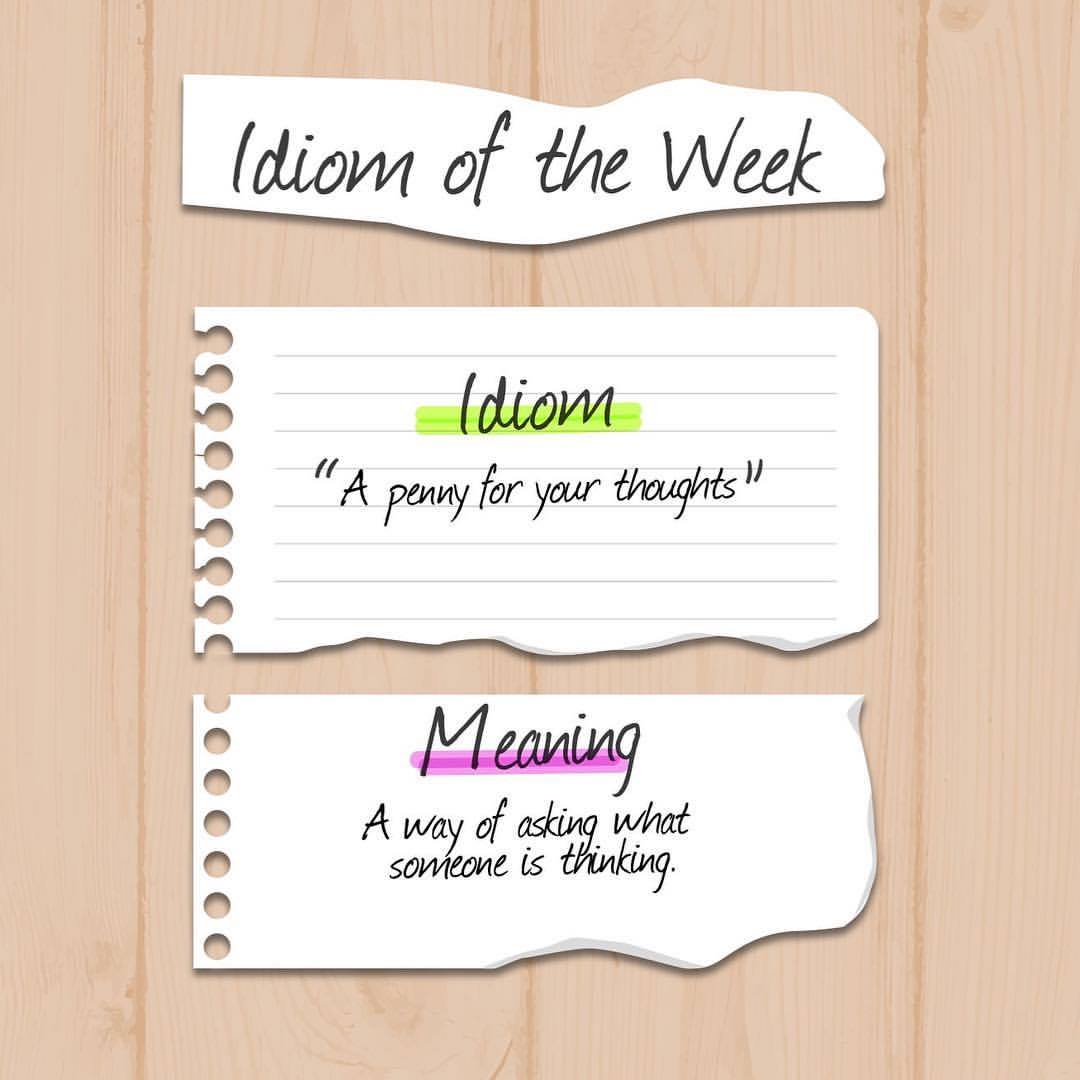 Idiom of the Week
Idiom
"A penny for your thoughts"
Meaning
A way of asking what
someone is thinking.